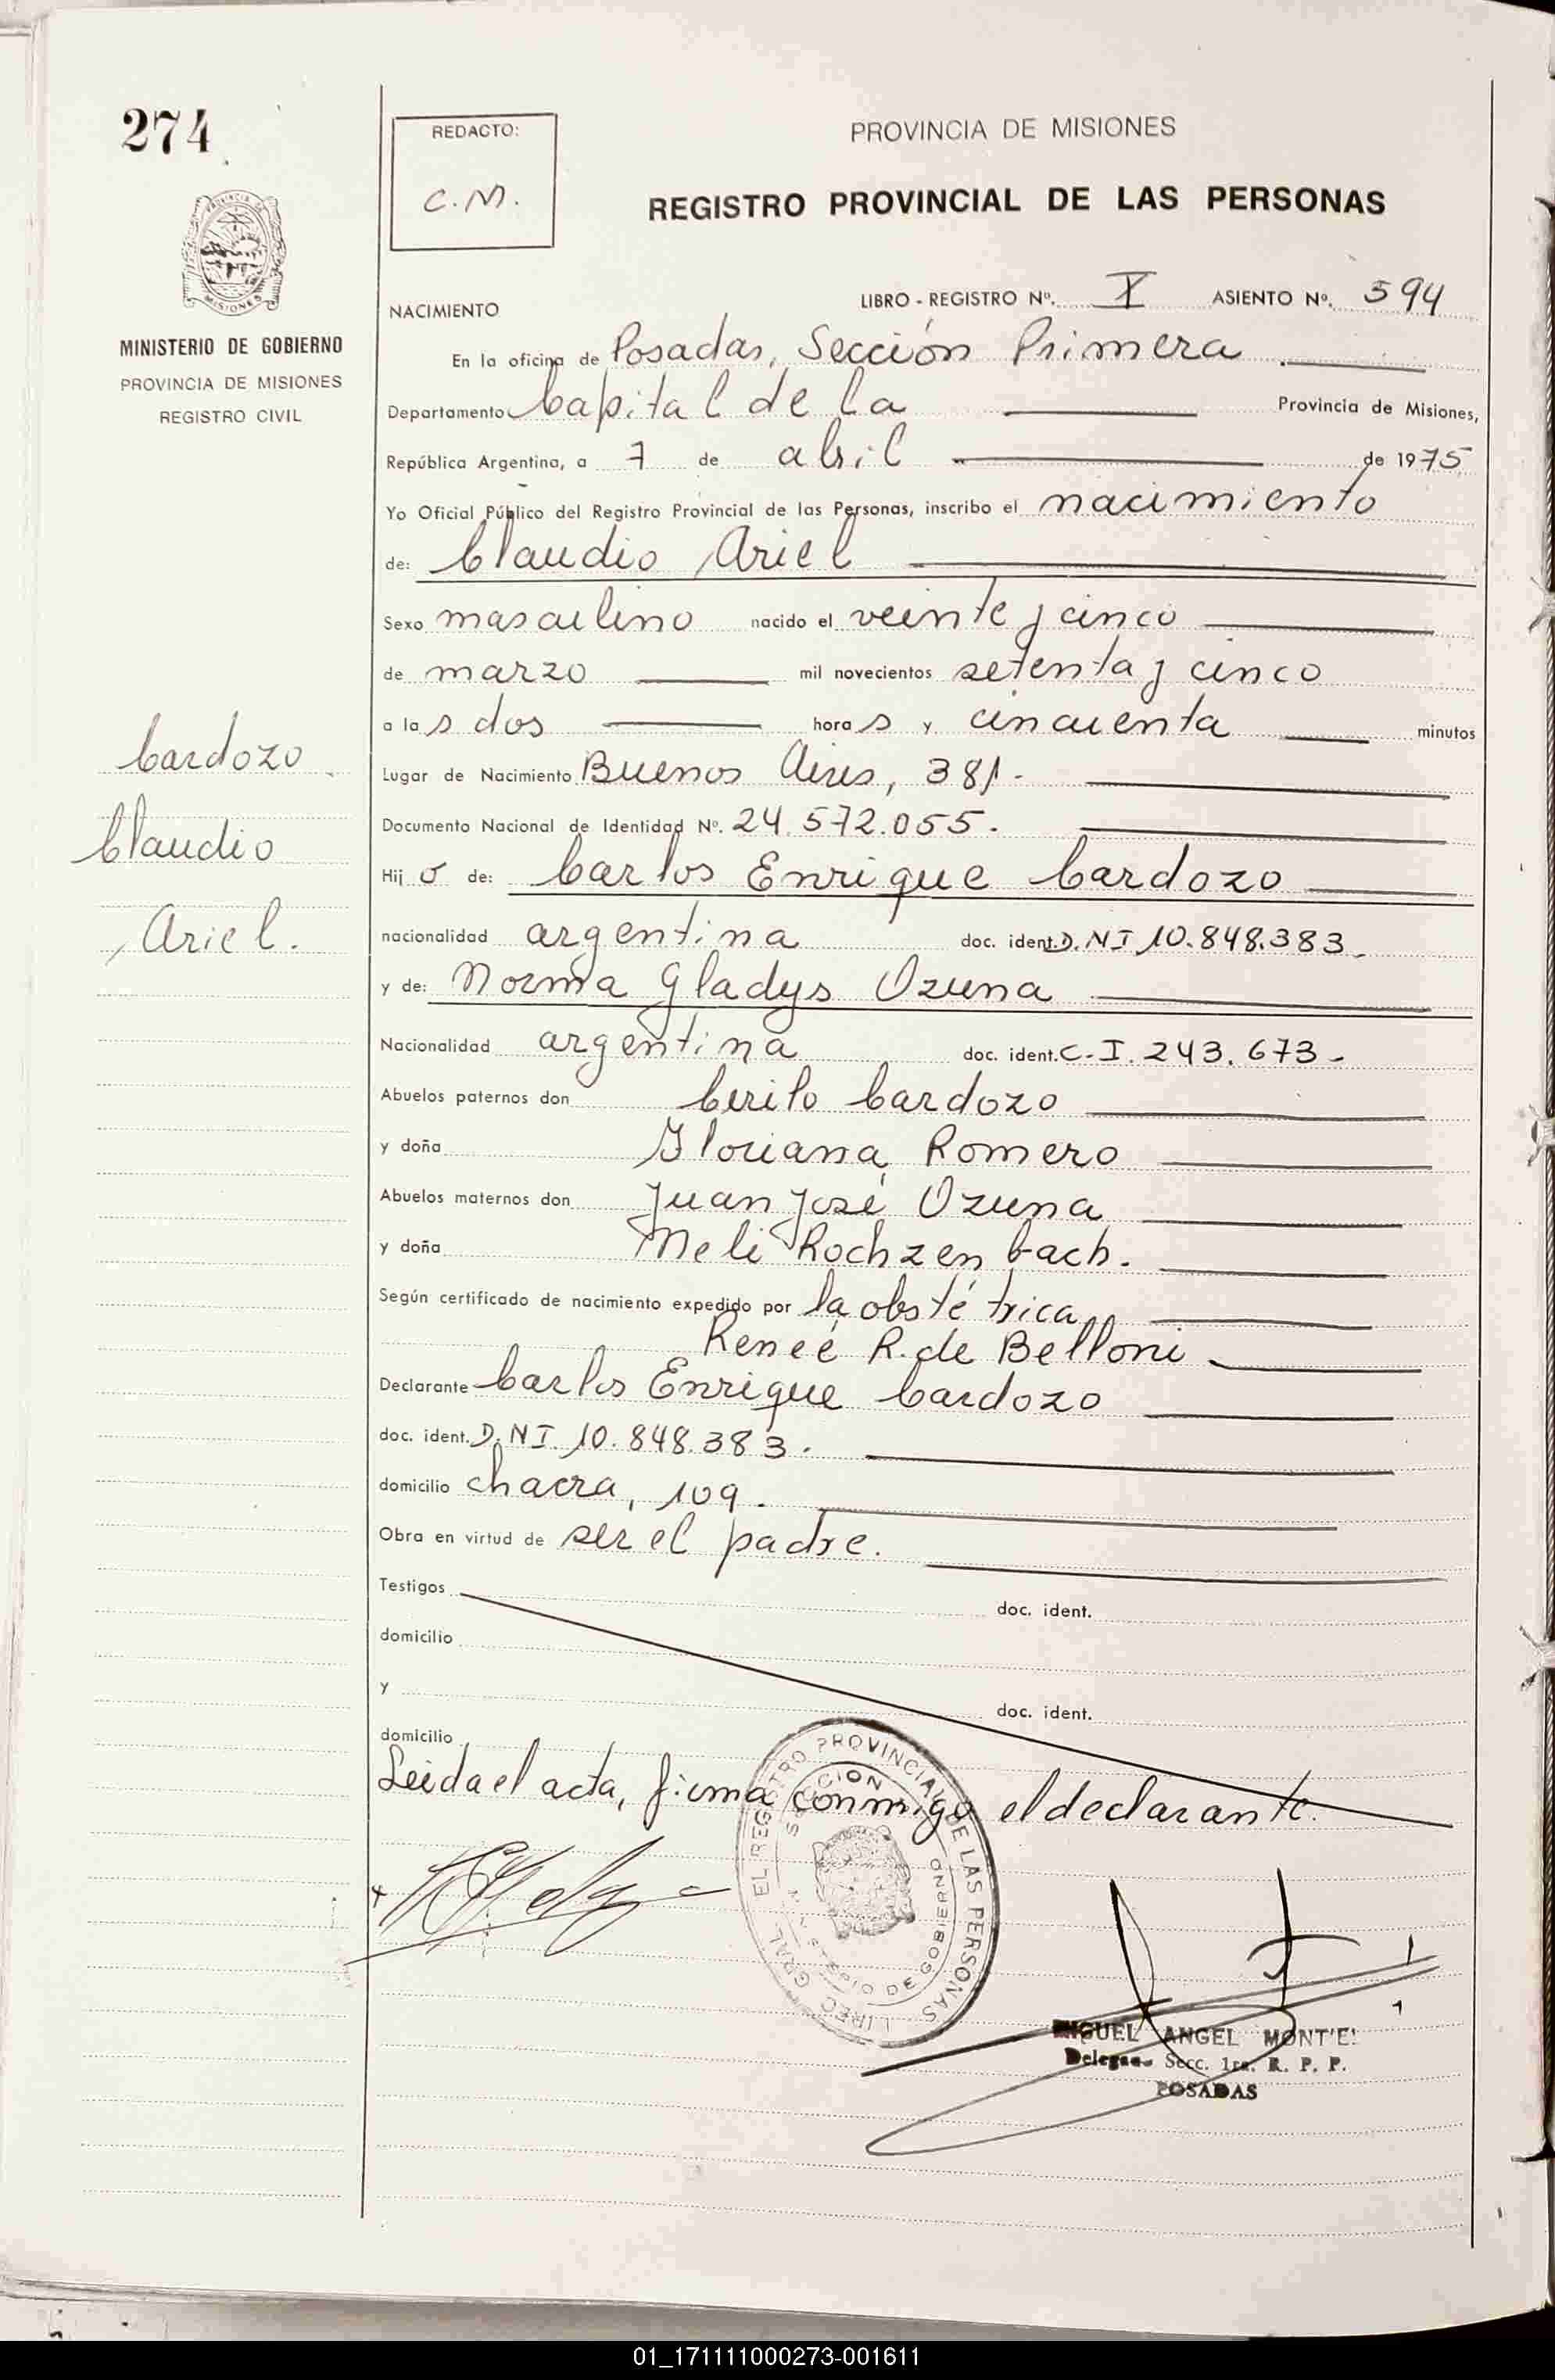 274
REDACTO:
C.M.
PROVINCIA DE MISIONES
REGISTRO PROVINCIAL DE LAS PERSONAS
MISIONES
MINISTERIO DE GOBIERNO
PROVINCIA DE MISIONES
REGISTRO CIVIL
NACIMIENTO
LIBRO - REGISTRO Nº. I ASIENTO Nº. 594
En la oficina de Posadas, Sección Primera
Departamento Capital de la Provincia de Misiones,
República Argentina, a 7 de abril de 1975
Yo Oficial Público del Registro Provincial de las Personas, inscribo el nacimiento
de: Claudio Ariel
Sexo masculino nacido el veinte y cinco
de marzo mil novecientos setenta y cinco
a las dos horas y cincuenta minutos
Cardozo
Claudio
Ariel.
Lugar de Nacimiento Buenos Aires, 381.-
Documento Nacional de Identidad Nº. 24.572.055.
Hijo de: Carlos Enrique Cardozo
nacionalidad argentina doc. ident. D.NI 10.848.383.
y de: Norma Gladys Ozuna
Nacionalidad argentina doc. ident. C.I. 243.673-
Abuelos paternos don Cirilo Cardozo
y doña Floriana Romero
Abuelos maternos don Juan José Ozuna
y doña Meli Rochzenbach.
Según certificado de nacimiento expedido por la obstétrica
Reneé R. de Belloni
Declarante Carlos Enrique Cardozo
doc. ident. D.NI. 10.848.383.
domicilio chacra, 109.
Obra en virtud de ser el padre.
Testigos doc. ident.
domicilio
y doc. ident.
domicilio
Leida el acta, firma conmigo el declarante.
DIREC. GRAL. EL REGISTRO PROVINCIAL DE LAS PERSONAS
SECCION
DE GOBIERNO
MIGUEL ANGEL MONTE!
Delegado Secc. 1ra. R. P. P.
POSADAS
01_171111000273-001611